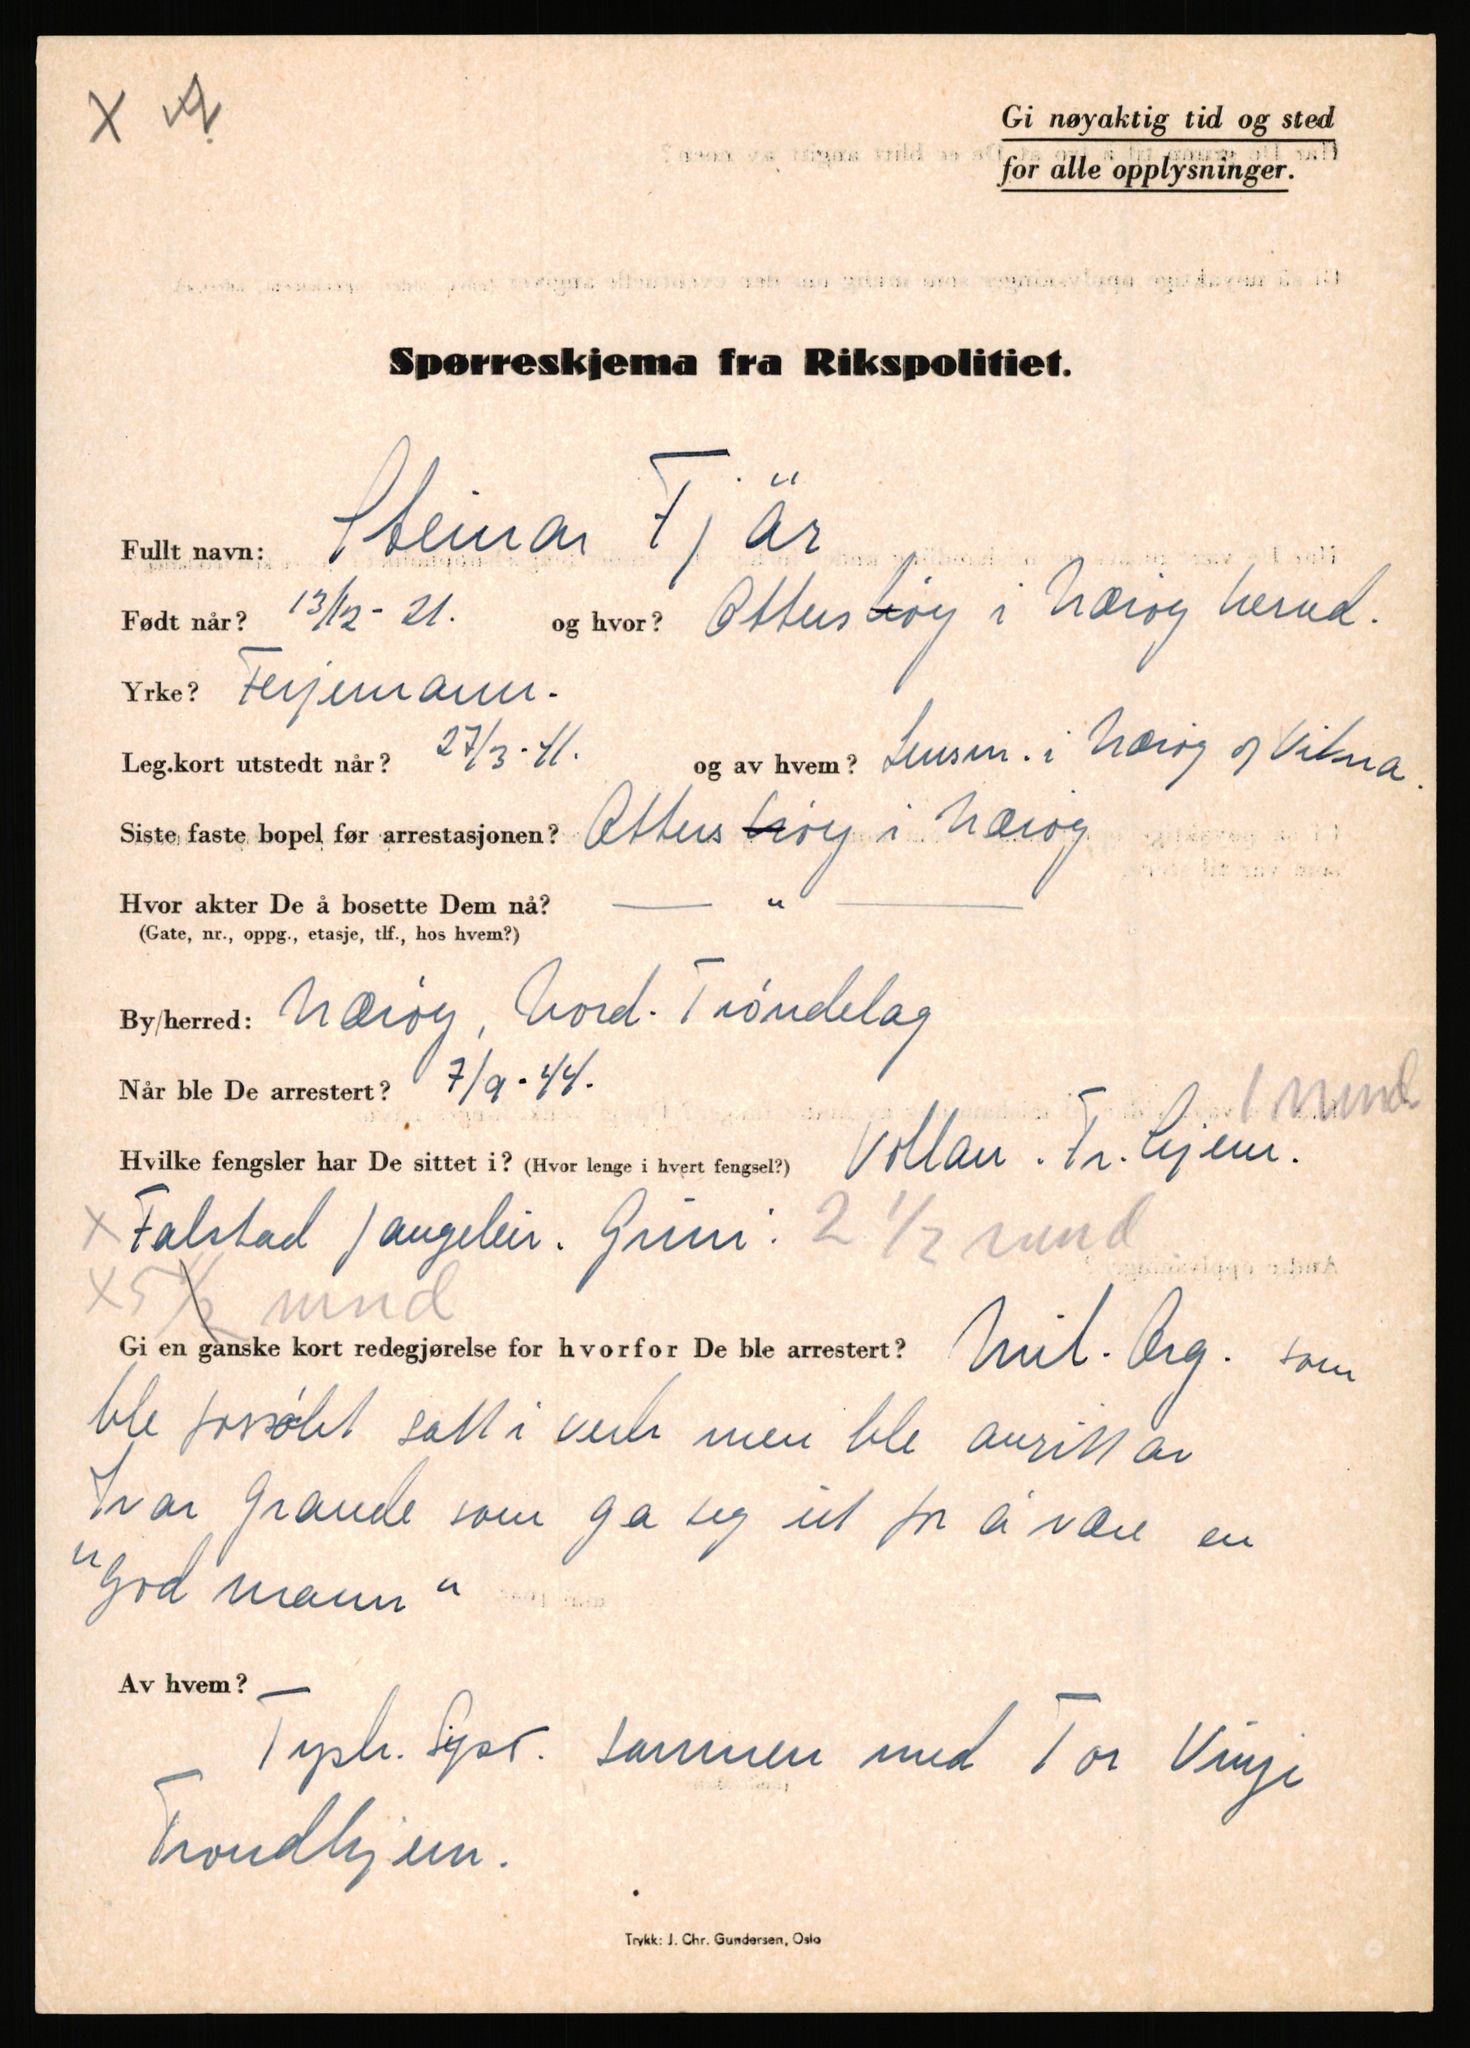 X
Gi nøyaktig tid og sted
for alle opplysninger.
Spørreskjema fra Rikspolitiet.
Fullt navn: Steinar Fjär
Født når? 13/12-21. og hvor? Ottersøy i Nærøy herred.
Yrke? Ferjemann.
Leg.kort utstedt når? 27/3-41. og av hvem? Lensm. i Nærøy og Vikna.
Siste faste bopel før arrestasjonen? Ottersøy i Nærøy
Hvor akter De å bosette Dem nå? — " —
(Gate, nr., oppg., etasje, tlf., hos hvem?)
By/herred: Nærøy, Nord-Trøndelag
Når ble De arrestert? 7/9-44.
1 mnd
Hvilke fengsler har De sittet i? (Hvor lenge i hvert fengsel?) Vollan. Tr.hjem.
X Falstad fangeleir. Grini. 2 1/2 mnd
X 5 1/2 mnd
Gi en ganske kort redegjørelse for hvorfor De ble arrestert? Mil. Org. som
ble forsøkt satt i verk men ble angitt av
Ivar Grande som ga seg ut for å være en
"God mann"
Av hvem?
Tysk. Sipo. sammen med Tor Vinje
Trondhjem.
Trykk: J. Chr. Gundersen, Oslo